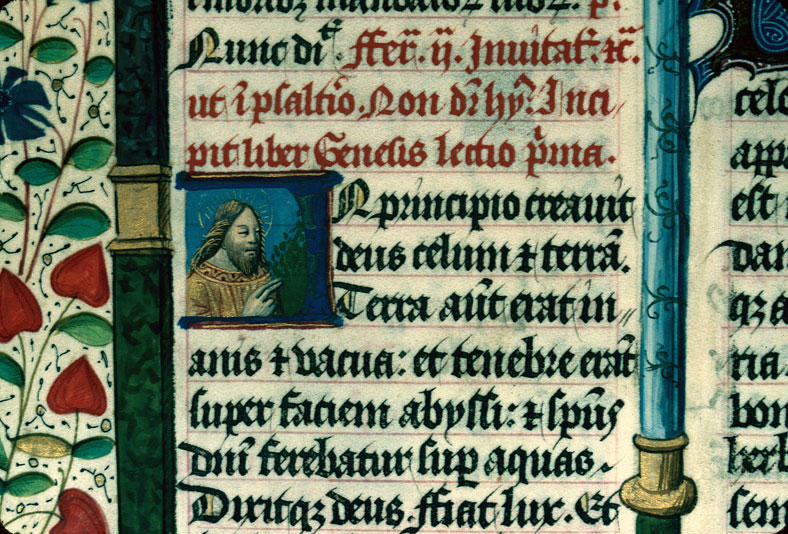 Nunc di.
ffer̄. ij. Invitat̄. ⁊c̄.
ut ī psaltīo. Non dr̄ hy. Inci
pit liber Genesis lectio p̄ma.
IN principio creavit
deus celum ⁊ terrā.
Terra aūt erat in//
anis ⁊ vacua: et tenebre erāt
super faciem abyssi: ⁊ sp̄us
dn̄i ferebatur sup aquas.
Dixitqꝫ deus. ffiat lux. Et
celo
appa
est
dan
qꝫ a
ria
bon
herb
sem